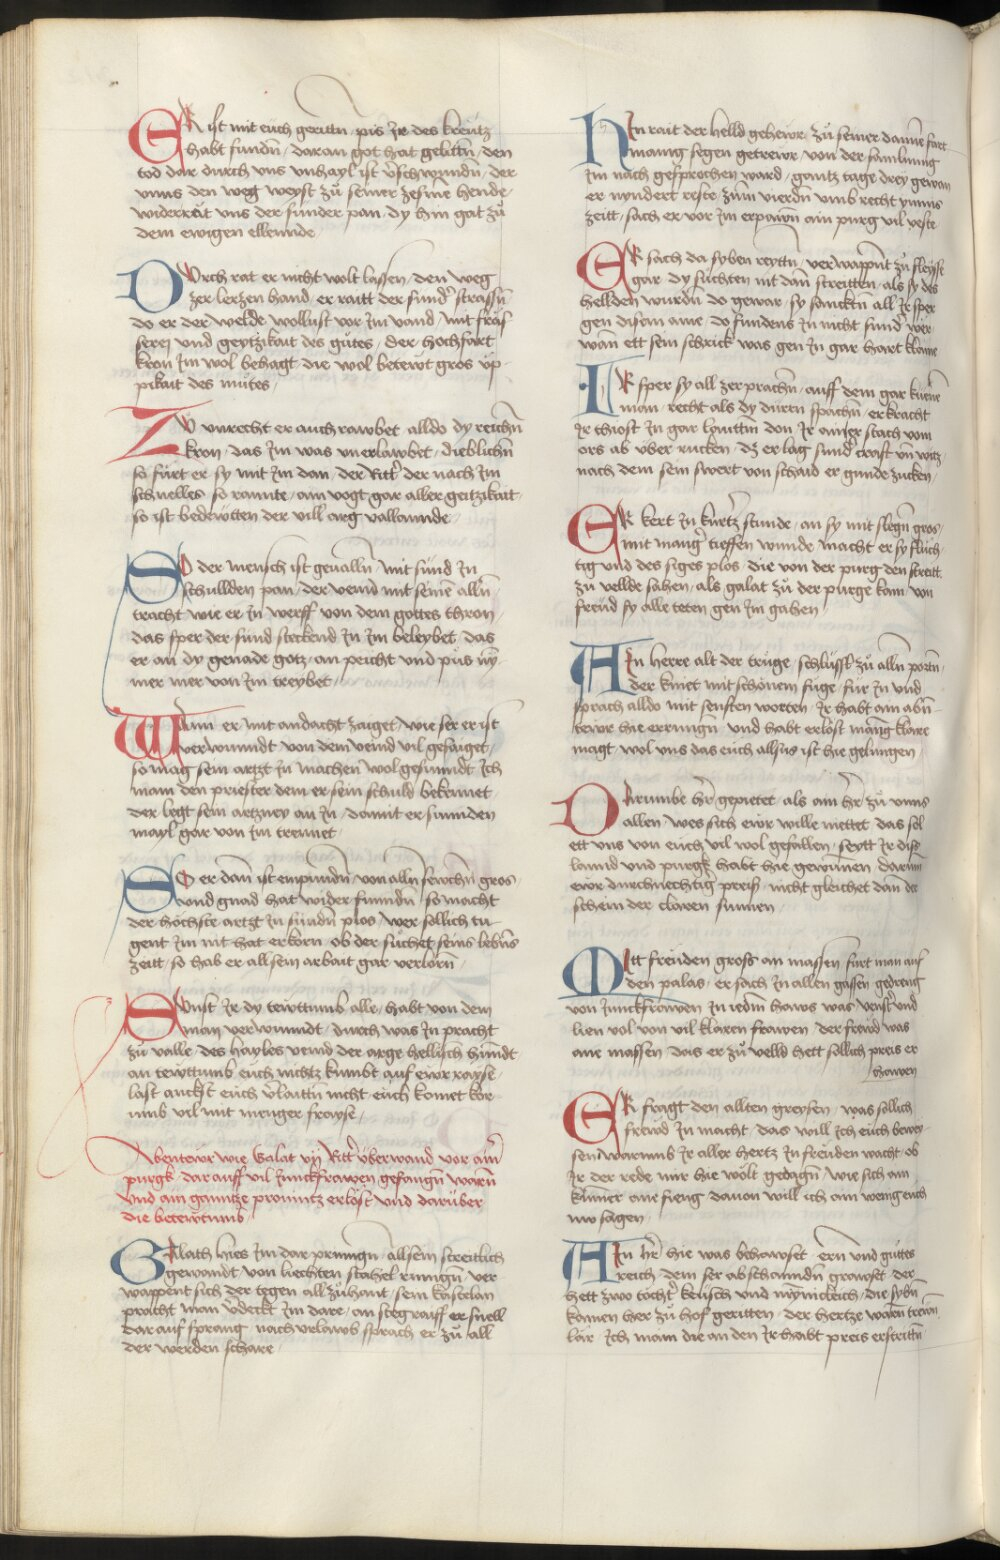 ER ist mit euch gerittn / pis Jr des kreutz
habt fundn / daran got hat gelittn / den
tod dar durch uns unhayl ist v̄schwundn / der
uns den weg weyst zů seiner zesme hende /
widerrät uns der sunder pan / dy hin gat zů
dem ewigen ellennde
DUrch rat er nicht wolt lassen / den weg
zer lerzen hand / er raitt der sund' strassn̄
do er der welde wollust vor Jm vand / mit fräs
serej und geytzikait des gůtes / der hochfart
kron Jm wol behagt / die wol betewt gros üp-
pikait des můtes /
ZW unrecht er auch rawbet / alldo dy reichn̄
kron / das Jm was unerlawbet / dieblichn̄
so fůrt er sy mit Jm dan / der Ritt' der nach Jm
schnelles so rannte / ain vogt gar aller geitzikait
so ist bedewtten der vill arg vallannde /
SO der mensch ist geualln̄ mit sünd Jn
schullden pan / der veind mit seinē alln̄
tracht wie er Jn werff von dem gottes thron /
das sper der sund steckend Jn Jm beleybet / das
er an dy genade gotz / an peicht und půs nÿ-
mer mer von Jm treybet /
WAnn er mit andacht zaiget / wie ser er ist
verwunndt von dem veind vil gesaiget /
so mag sein artzt Jn machen wol gesunndt Jch
main den priester dem er sein schuld bekennet /
der legt sein artzney an Jn / damit er sunnden
mayl gar von Jm trennet /
SO er dan̄ ist enpundn̄ / von alln̄ sewchn̄ gros /
und gnad hat wider fundn̄ / so macht
der höchste artzt Jn sündn̄ plos / wer sollich tu-
gent Jm nit hat erkorn / ob der sůchet seins lebn̄s
zeitt / so hab er all sein arbait gar verlorn̄ /
SUnst Jr dy tewttumb alle / habt von dem
man verwunndt / durch was Jn pracht
zů valle / des hayles veind der arge hellisch hůndt
an tewttumb euch nichtz kumbt auf ewr rayse /
last anckst euch v̄laittn̄ nicht euch komet kor-
numb vil mit menger frayse /
Abentewr wie Galat vij Ritt' überwand vor ain̄'
purgk / dar auff vil Junckfrawen gefangn̄ warn̄
und ain gannttze prouintz erlöst und darüber
die betewtumb /
GAlath hies Jm dar pringn̄ / all sein streitlich
gewandt von liechten stahel ringn̄ / ver
wappent sich der tegen all zů hant / sein kastelan
pracht man v̄deckt Jm dare / an stegraiff er snell
dar auf sprang / nach urlawb sprach er zů all
der werden schare /
HIn rait der helld gehewr / zů seiner dannē fart
maing segen getrewr / von der samlnung
Jm nach gesprochen ward / ganntz tage drey gewan
er nynndert reste / zům vierdn̄ umb recht ymms
zeitt / sach er vor Jm erpawn̄ ain purg vil veste
ER sach da syben reyttn̄ / verwappn̄t zů fleysse
gar / dy sůchten nit dan̄ streitten / als sy des
hellden wurdn̄ do gewar / sy sanckten all Jr sper
gen disem aine / do fundens Jn nicht sund' wer
wan̄ ett sein schrick was gen Jn gar hart klaine
IR sper sy all zerprachn̄ / auff dem gar kuenē
man / recht als dy durrn spachn̄ / er kracht
Jr thiost Jn gar lauttm don / Jr ainer stach vom
ors ab über rucken / dz er lag sund' craft vn̄ witz
nach dem sein swert von schaid er gunde zucken /
ER kert Jn kurtz' stunde / an sy mit slegn̄ gros /
mit mang' tieffen wunde macht er sy fluch-
tig und des siges plos / die von der purg den streitt
zu vellde sahen / als galat zů der purge kam / von
freud sy alle teten gen Jm gahen /
AIn herre alt der truge / schlůssl zů alln̄ portn̄ /
der kniet mit schonem fůge / fur Jn und
sprach alldo mit senften worten / Jr habt ain abn̄-
tewr hie errungn̄ und habt erlöst maing klare
magt wol uns das euch allsus ist hie gelungen /
DArumbe h'r gepietet / als ain h'r zů unns
allen / wes sich ewr wille niettet / das sol
ett uns von euch vil wol gefallen / seytt Jr diss
lannd und purgk habt hie gewunnen / darum̄
ewr durchnechtig preiss / nicht gleichet dan̄ der
schein der claren sunnen /
MItt freuden gross an massen / fürt man auf
den palas / er sach Jn allen gassen gedreng
von Junckfrawen / Jn iedm haws was venst' und
lien vol von vil klaren frawen / der freud was
ane massen / das er zů velld hett sollich preis er
hawen
ER fragt den allten greysen / was sollich
freud Jn macht / das will Jch euch bewey-
sen warumb Jr aller hertz Jn freuden wacht / ob
Jr der rede mir hie wölt gedagn̄ / wie sich am
kumer ane fieng / dauon will ich ain wenig euch
nw sagen /
AIn h'r hie was behawset / ern und guttes
reich / dem ser ab schanndn̄ grawset / der
hett zwo tocht' keusch und mynnicklich / die sybn̄
kamen her zů hof geritten / der hertze warn̄ trewn̄
lär / Jch main die an den Jr habt preis erstrittn̄